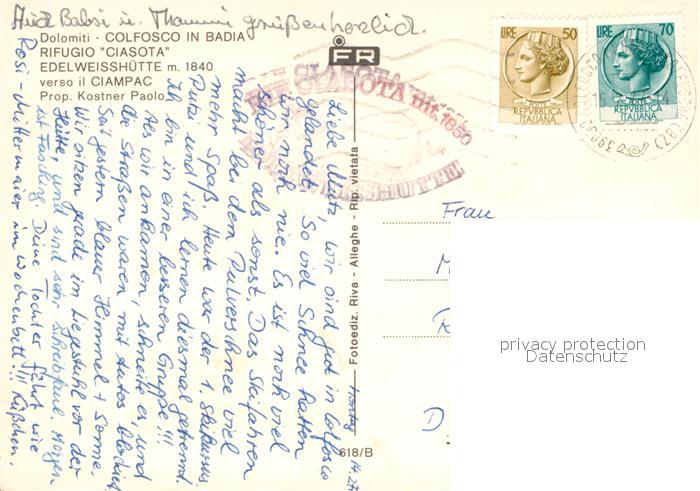 Auch Babsi u. Mammi grüßen herzlich.
Dolomiti - COLFOSCO IN BADIA
RIFUGIO "CIASOTA"
EDELWEISSHÜTTE m. 1840
verso il CIAMPAC
Prop. Kostner Paolo
FR
LIRE 50
REPVBBLICA
ITALIANA
LIRE 70
REPVBBLICA
ITALIANA
39030
(BZ)
CIASOTA mt. 1850
EDELWEISSHÜTTE
Liebe , wir sind gut in Colfosco
gelandet. So viel Schnee hatten
wir noch nie. Es ist noch viel
schöner als sonst. Das Skifahren
macht bei dem Pulverschnee viel
mehr Spaß. Heute war der 1. Skikursus
Putzi und ich lernen diesmal getrennt.
Ich bin in einer besseren Gruppe!!!
Als wir ankamen, schneite es, und
die Straßen waren mit Autos blockiert.
Seit gestern blauer Himmel + Sonne.
Wir sitzen grade im Liegestuhl vor der
Hütte, und sind sehr schreibfaul. Morgen
ist Fasching. Deine Tochter fährt wie
Rosi-Mittermaier im Wochenbett!!! Küßchen.
Fotoediz. Riva - Alleghe - Rip. vietata
618/B
Frau
M
D
privacy protection
Datenschutz